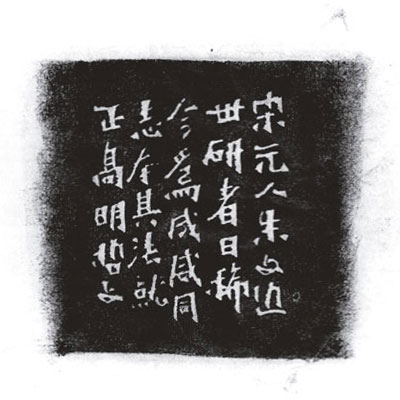 宋元人朱文近
世研者日稀
今爲成咸同
志本其法就
正髙明哲文